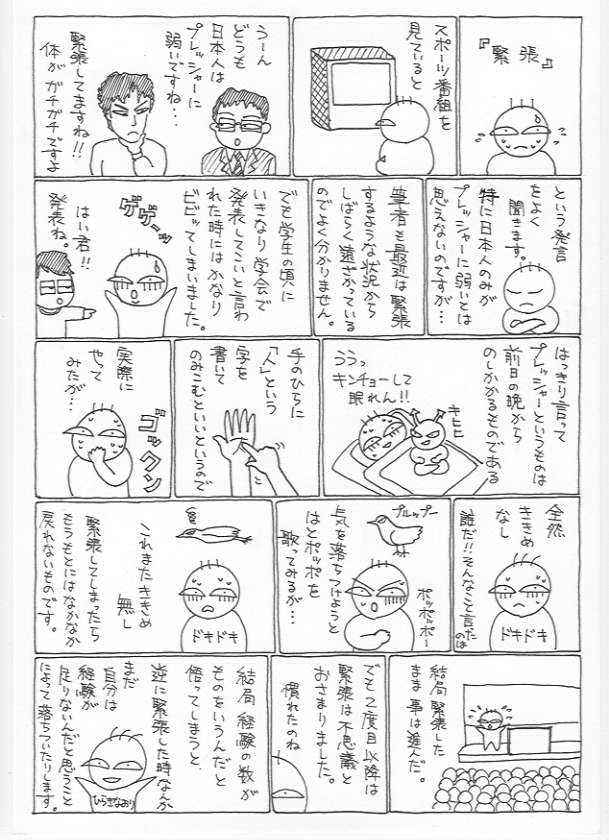 『緊張』
スポーツ番組を
見ていると
うーん
どうも
日本人は
プレッシャーに
弱いですね…
緊張してますね!!
体がガチガチですよ
という発言
をよく
聞きます。
特に日本人のみが
プレッシャーに弱いとは
思えないのですが…
筆者も最近は緊張
するような状況から
しばらく遠ざかっている
のでよく分かりません。
でも学生の頃に
いきなり学会で
発表してこいと言わ
れた時にはかなり
ビビッてしまいました。
ゲゲーッ
はい君!!
発表ね。
はっきり言って
プレッシャーというものは
前日の晩から
のしかかるものである
キヒヒ
ううっ
キンチョーして
眠れん!!
手のひらに
「人」という
字を
書いて
のみこむといいというので
実際に
やって
みたが…
ゴックン
全然
ききめ
なし
誰だ!!そんなこと言ったのは
ドキドキ
プルップー
ポッポッポー
気を落ちつけようと
はとポッポを
歌ってみるが…
これまたききめ
無し
ドキドキ
緊張してしまったら
もうもとにはなかなか
戻れないものです。
結局緊張した
まま事は進んだ。
でも2度目以降は
緊張は不思議と
おさまりました。
慣れたのね
結局経験の数が
ものをいうんだと
悟ってしまうと、
逆に緊張した時なんか
まだ
自分は
経験が
足りないんだと思うこと
によって落ちついたりします。
ひらきなおり